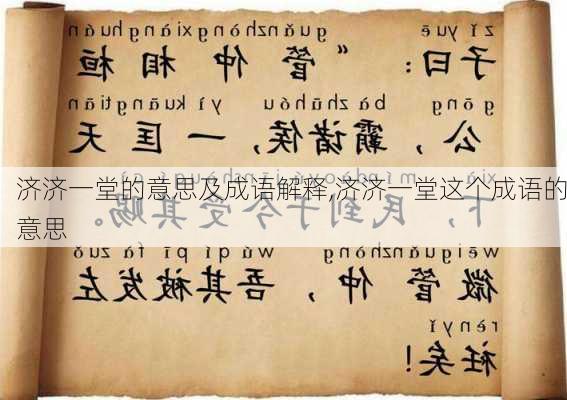 zǐ yuē guǎnzhòngxiànghuán
子曰：“管仲相桓
gōng bà zhūhóu yì kuāngtiān
公，霸诸侯，一匡天
济济一堂的意思及成语解释,济济一堂这个成语的
意思
下，民到于今受其赐。
wēiguǎnzhòng wú qí pī fà zuǒ
微管仲，吾其被发左
rènyǐ
衽矣！